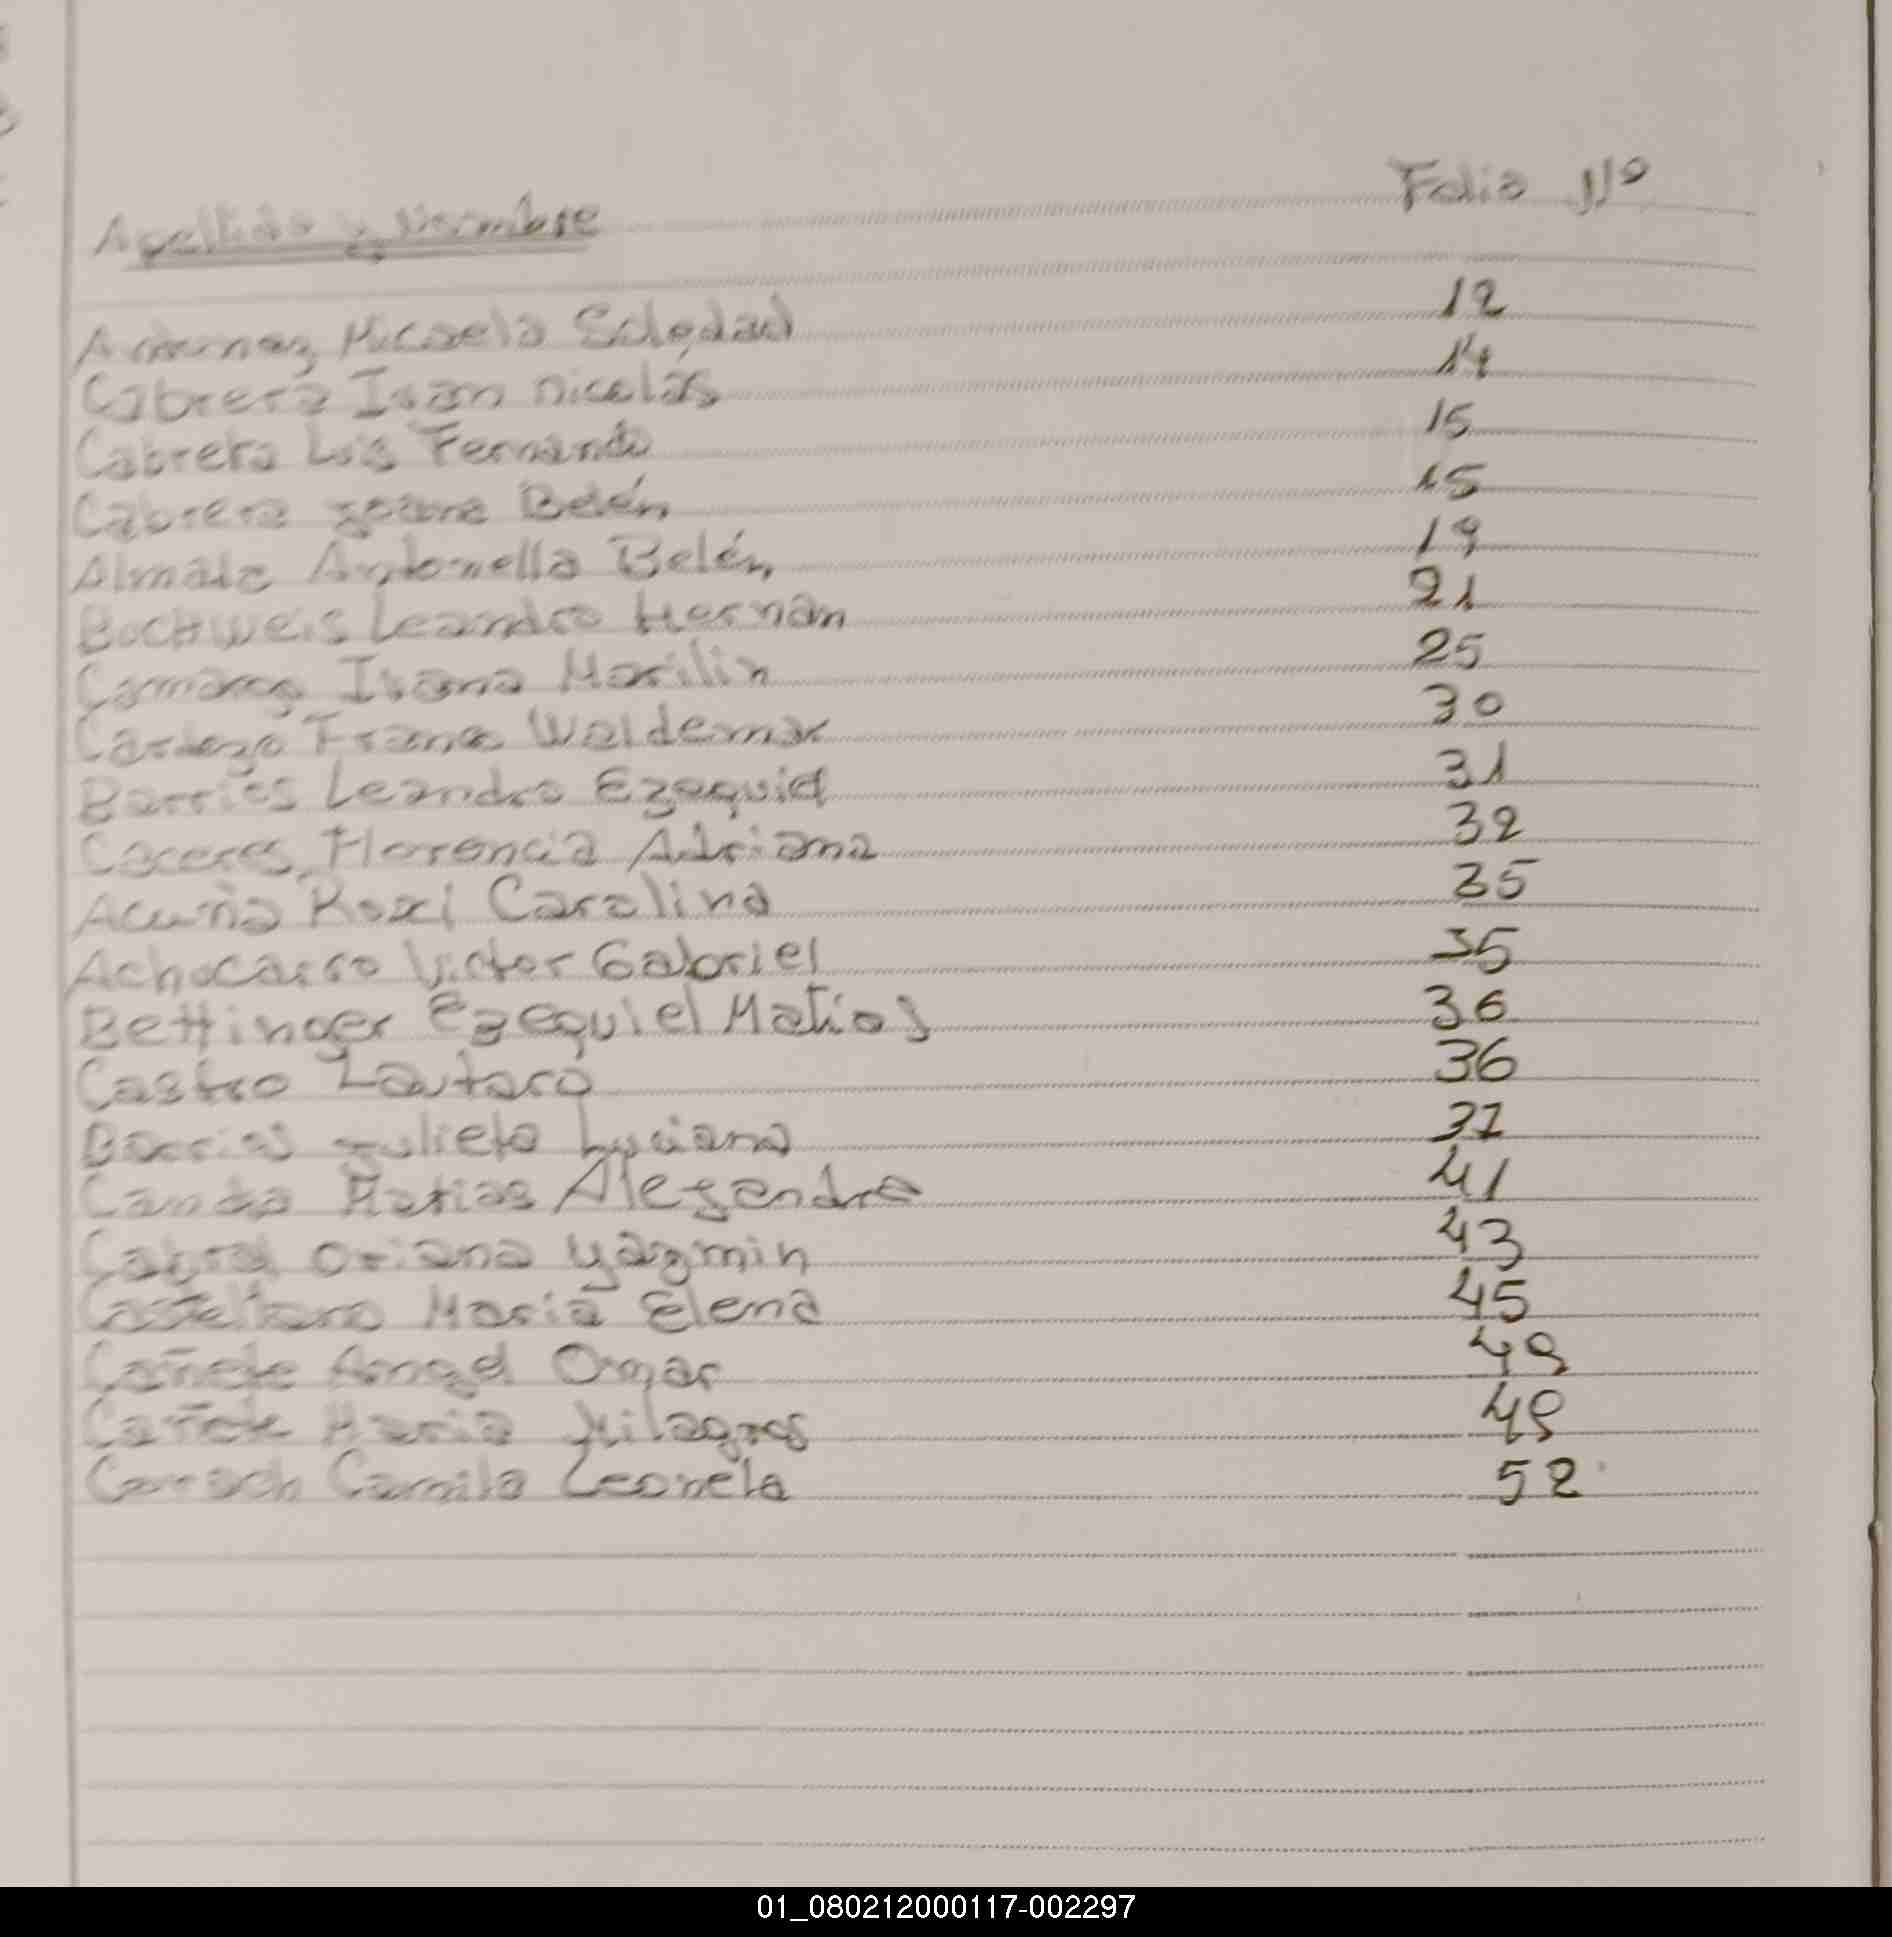 Apellido y Nombre Folio Nº
Micaela Soledad 12
Cabrera Ivan nicolás 14
Cabrera Luis Fernando 15
Cabrera Joana Belén 15
Almada Antonella Belén 19
Bochweis Leandro Hernán 21
Ivana Marilin 25
Cardozo Franco Waldemar 30
Barrios Leandro Ezequiel 31
Caceres Florencia Adriana 32
Acuña Roxi Carolina 35
Achucarro Victor Gabriel 35
Bettinger Ezequiel Matias 36
Castro Lautaro 36
Barrios Julieta Luciana 37
Matias Alejandro 41
Cabral Oriana Yazmin 43
Castellano Maria Elena 45
Cañete Angel Omar 49
Cañete Maria Milagros 49
Camila Leonela 52
01_080212000117-002297